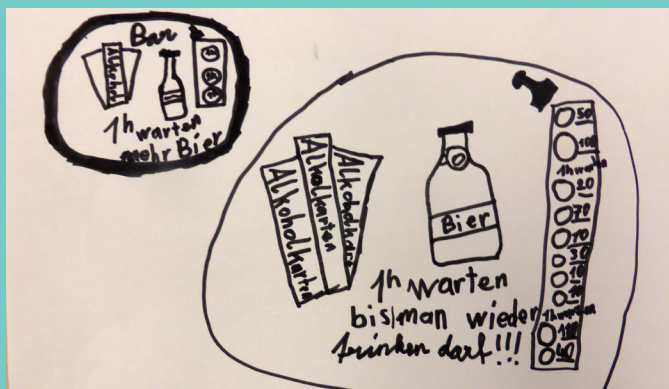 Bar
Alkohol
1h warten
mehr Bier
Alkoholkarten
Alkolkarten
Bier
1h warten
bis man wieder
trinken darf!!!
50
100
1h warten
20
70
10
30
10
1h warten
40